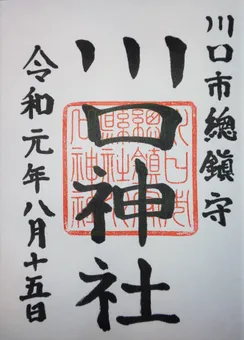 川口市總鎮守
川口神社
令和元年八月十五日